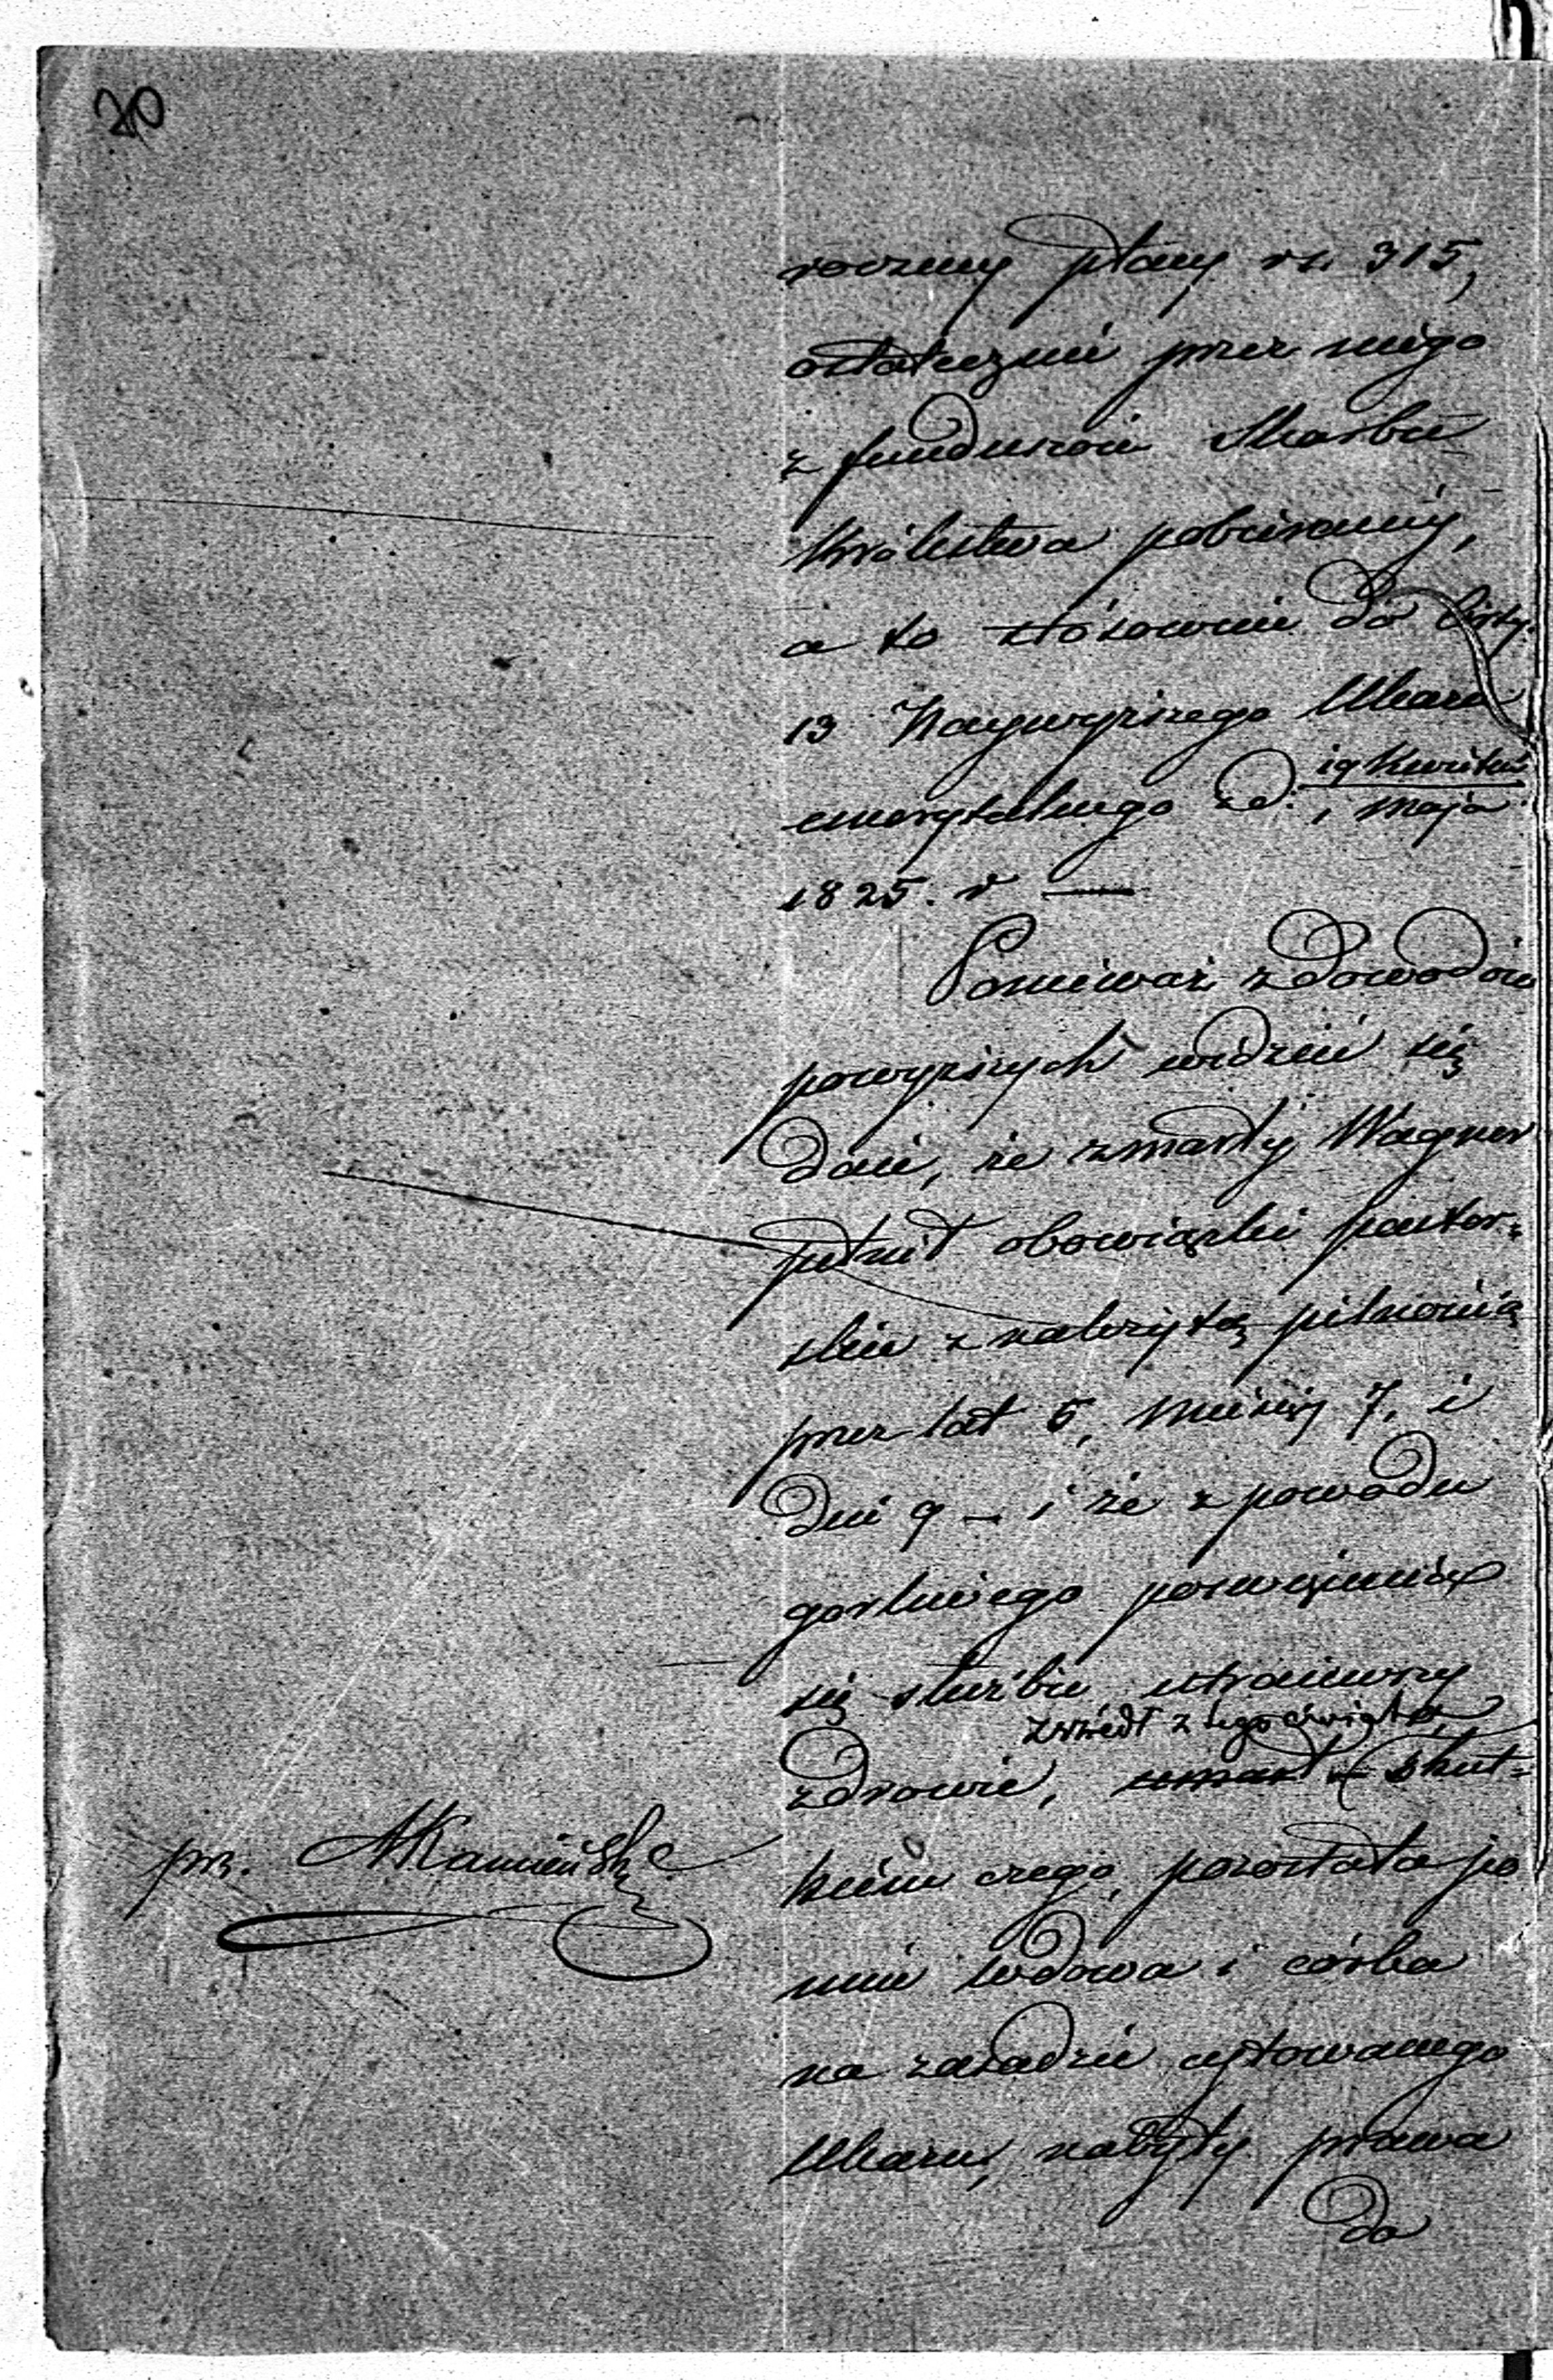 20
roczney płacy rs. 315,
ostatecznie przez niego
z funduszów Skarbu
Królestwa pobieraney,
a to stósownie do Arty.
13 Naywyższego Ukazu
emerytalnego z d. 19 Kwietnia
1 Maja
1825. r —
Ponieważ z dowodów
powyższych widzieć się
daie, że zmarły Wagner
pełnił obowiązki pastor=
skie z należytą pilnością
przez lat 5, miesięcy 7, i
dni 9 — i że z powodu
gorliwego poswięcenia
się służbie utraciwszy
zszedł z tego świata,
zdrowie, umarł — Skut=
kiem czego, pozostała po
prz. AKamieński
nim wdowa i córka
na zasadzie cytowanego
Ukazu, nabyły prawa
do